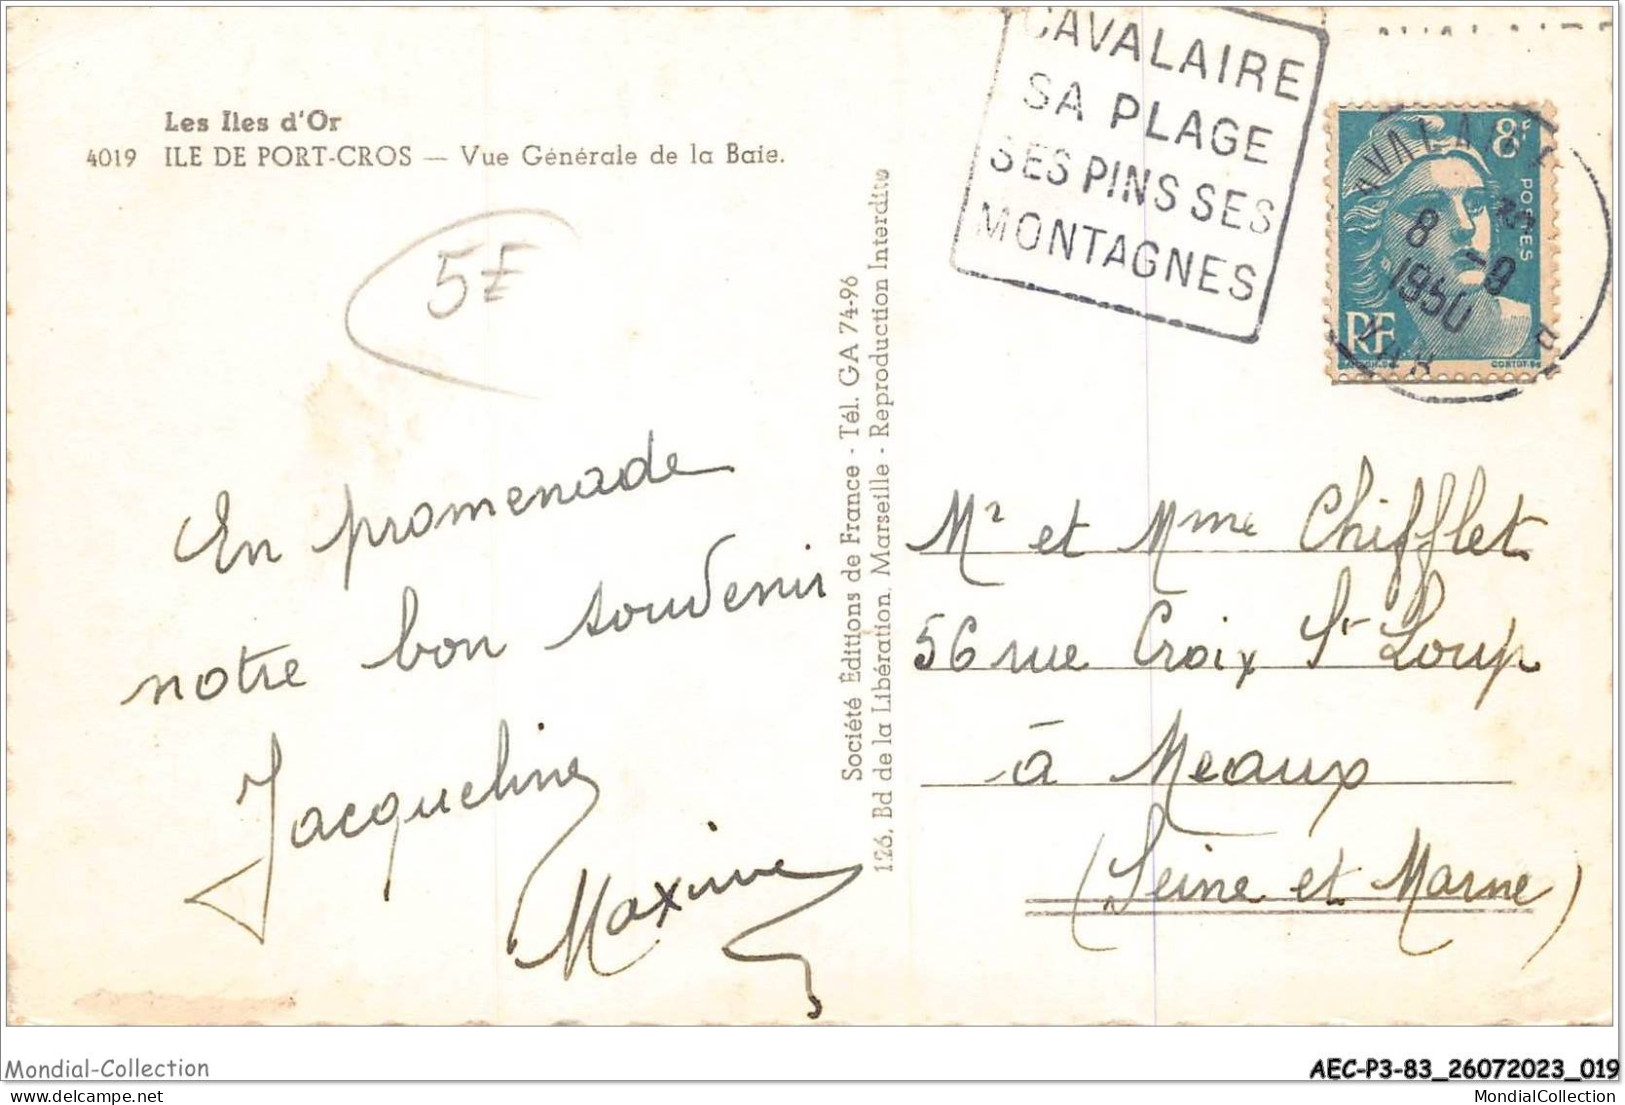 Les Iles d'Or
4019 ILE DE PORT-CROS — Vue Générale de la Baie.
5F
En promenade
notre bon souvenir
Jacqueline
Maxime
Société Éditions de France - Tél. GA 74-96
126, Bd de la Libération, Marseille - Reproduction Interdite
CAVALAIRE
SA PLAGE
SES PINS SES
MONTAGNES
8F
POSTES
RF
CAVALAIRE
8 -9
1950
VAR
Mr et Mme Chifflet
56 rue Croix St Loup
à Meaux
(Seine et Marne)
Mondial-Collection
AEC-P3-83_26072023_019
MondialCollection.com
MondialCollection.com